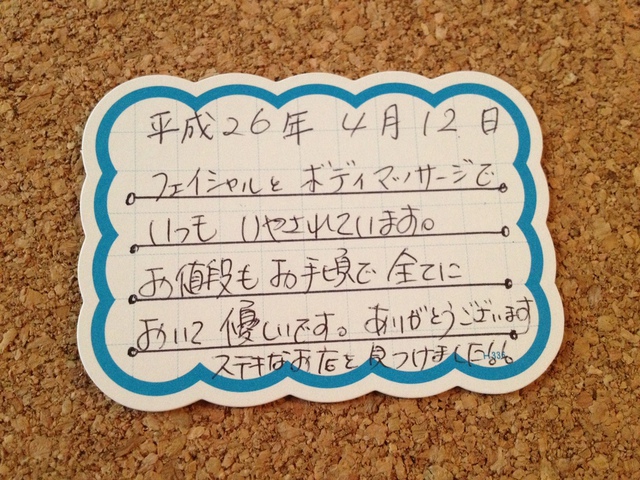 平成26年 4月12日
フェイシャルと ボディマッサージで
いつも いやされています。
お値段も お手頃で 全てに
おいて 優しいです。 ありがとうございます
ステキなお店を見つけました!!